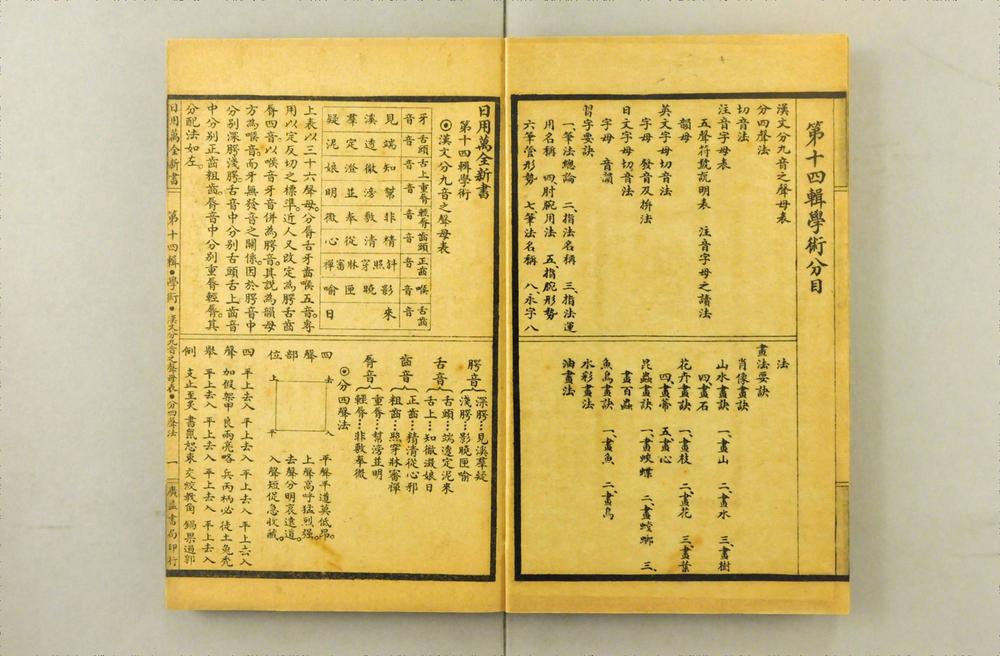 第十四輯學術分目
漢文分九音之聲母表
分四聲法
切音法
注音字母表
五聲符號說明表　注音字母之讀法
韻母
英文字母切音法
字母　發音及拚法
日文字母切音法
字母　音韻
習字要訣
一、筆法總論　二、指法名稱　三、指法運
用名稱　四、肘腕用法　五、指腕形勢
六、筆管形勢　七、筆法名稱　八、永字八
法
畫法要訣
肖像畫訣
山水畫訣　一、畫山　二、畫水　三、畫樹
四、畫石
花卉畫訣　一、畫枝　二、畫花　三、畫葉
四、畫蒂　五、畫心
昆蟲畫訣　一、畫蛺蝶　二、畫螳螂　三、
畫百蟲
魚鳥畫訣　一、畫魚　二、畫鳥
水彩畫法
油畫法
日用萬全新書
第十四輯學術
◎漢文分九音之聲母表
牙音　舌頭音　舌上音　重脣音　輕脣音　齒頭音　正齒音　喉音　舌齒音
見　端　知　幫　非　精　照　影　來
溪　透　徹　滂　敷　清　穿　曉　日
羣　定　澄　並　奉　從　牀　匣
疑　泥　娘　明　微　心　審　喻
上表以三十六聲母。分脣舌牙齒喉五音。專
用以定反切之標準。近人又改定為腭舌齒
脣四音。以喉音牙音併為腭音。其說為韻母
方為喉音。而牙無發音之關係。因於腭音中
分別深腭淺腭。舌音中分別舌頭舌上。齒音
中分別正齒粗齒。脣音中分別重脣輕脣。其
分配法如左。
腭音　深腭…見溪羣疑
淺腭…影曉匣喻
舌音　舌頭…端透定泥來
舌上…知徹澄娘日
齒音　正齒…精清從心邪
粗齒…照穿牀審禪
脣音　重脣…幫滂並明
輕脣…非敷奉微
◎分四聲法
四聲部位
去
上
入
平
平聲平道莫低昂。
上聲高呼猛烈強。
去聲分明哀遠道。
入聲短促急收藏。
四聲舉例
平上去入　平上去入　平上去入　平上去入
加假架甲　良兩亮略　兵丙柄必　徒土兔禿
平上去入　平上去入　平上去入　平上去入
支止至炙　書鼠恕束　交絞教角　鍋果過郭
日用萬全新書　第十四輯●學術●漢文分九音之聲母表●分四聲法　一　廣益書局印行